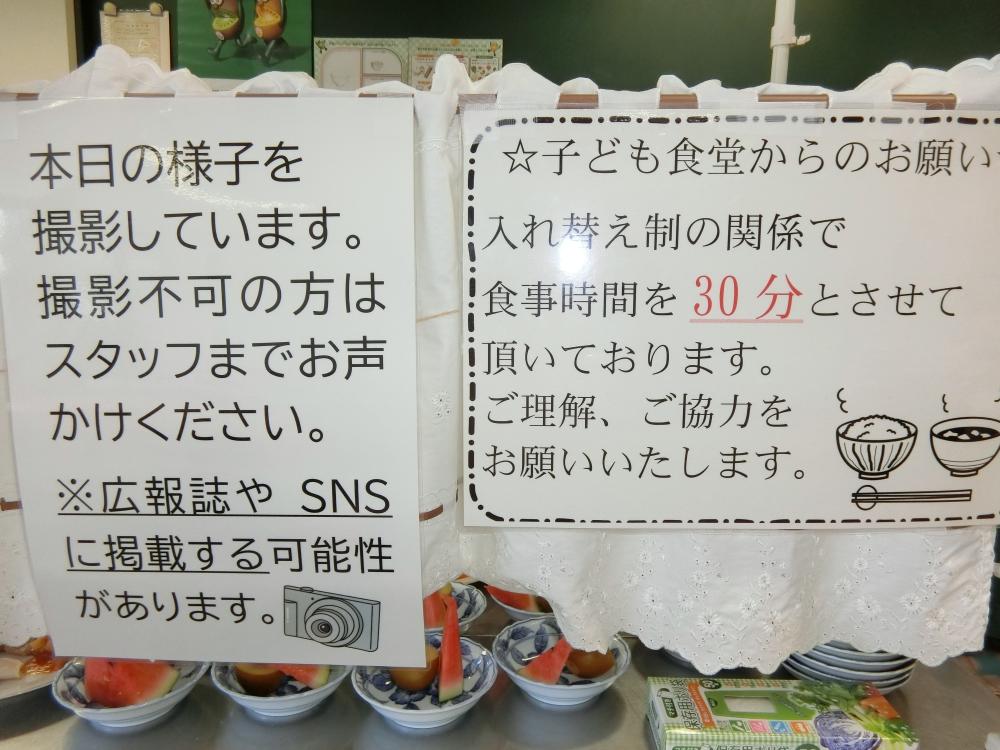 本日の様子を
撮影しています。
撮影不可の方は
スタッフまでお声
かけください。
※広報誌や SNS
に掲載する可能性
があります。
☆子ども食堂からのお願い
入れ替え制の関係で
食事時間を 30 分とさせて
頂いております。
ご理解、ご協力を
お願いいたします。